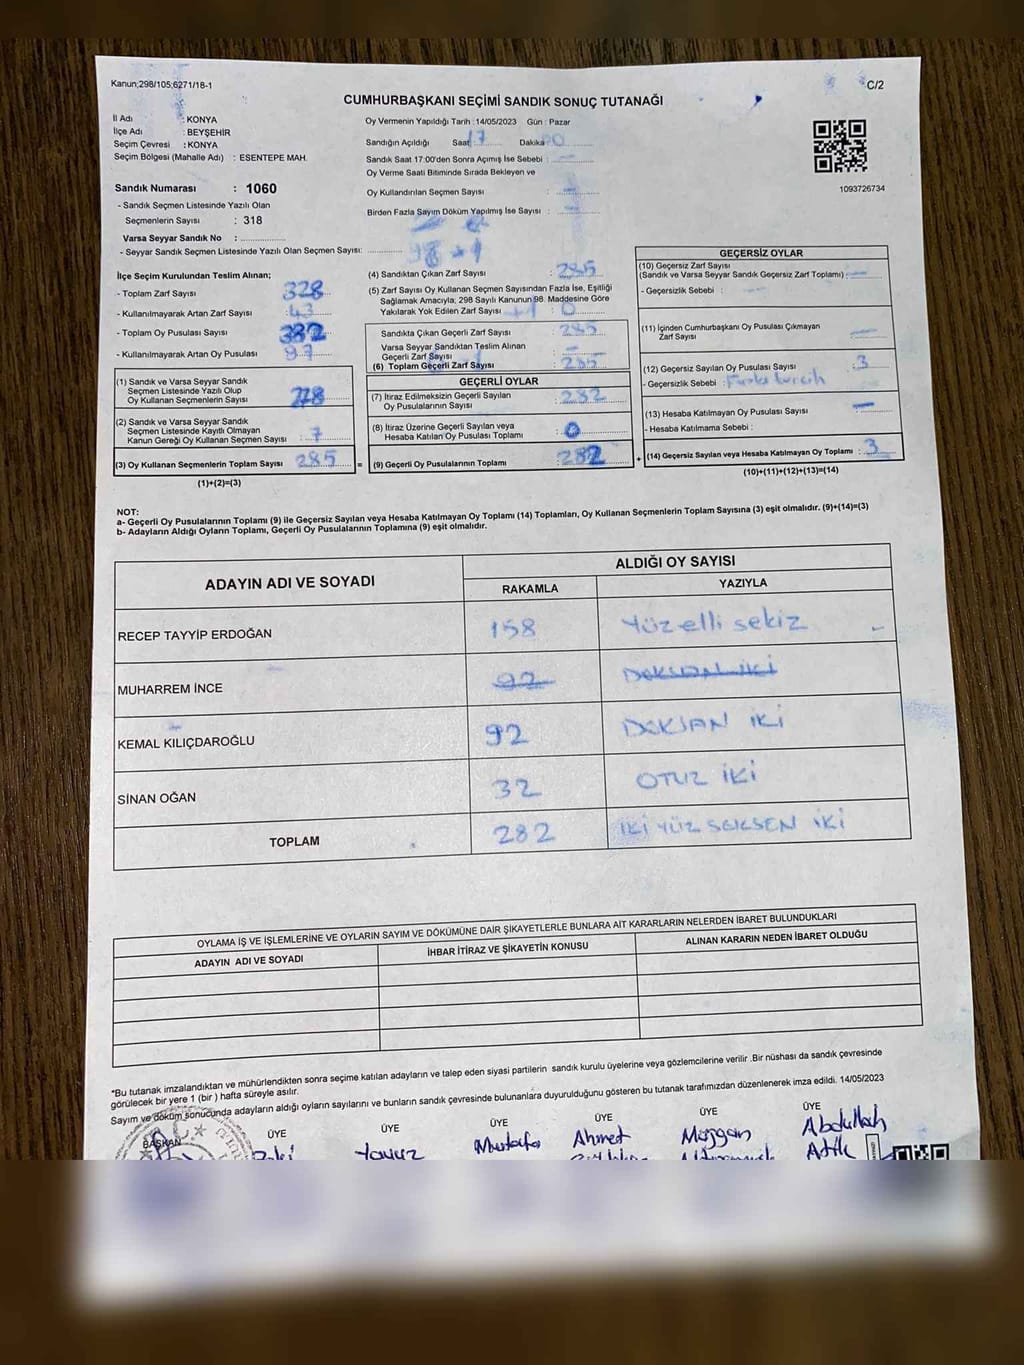 Kanun;298/105;6271/18-1
C/2
CUMHURBAŞKANI SEÇİMİ SANDIK SONUÇ TUTANAĞI
İl Adı : KONYA
İlçe Adı : BEYŞEHİR
Seçim Çevresi : KONYA
Seçim Bölgesi (Mahalle Adı) : ESENTEPE MAH.
Sandık Numarası : 1060
- Sandık Seçmen Listesinde Yazılı Olan
Seçmenlerin Sayısı : 318
Varsa Seyyar Sandık No :
- Seyyar Sandık Seçmen Listesinde Yazılı Olan Seçmen Sayısı:
Oy Vermenin Yapıldığı Tarih : 14/05/2023 Gün : Pazar
Sandığın Açıldığı Saat: 17 Dakika: 00
Sandık Saat 17:00'den Sonra Açımış İse Sebebi : —
Oy Verme Saati Bitiminde Sırada Bekleyen ve
Oy Kullandırılan Seçmen Sayısı : —
Birden Fazla Sayım Döküm Yapılmış İse Sayısı : —
1093726734
İlçe Seçim Kurulundan Teslim Alınan;
- Toplam Zarf Sayısı : 328
- Kullanılmayarak Artan Zarf Sayısı : 43
- Toplam Oy Pusulası Sayısı : 382
- Kullanılmayarak Artan Oy Pusulası : 97
(1) Sandık ve Varsa Seyyar Sandık
Seçmen Listesinde Yazılı Olup
Oy Kullanan Seçmenlerin Sayısı : 278
(2) Varsa Sandık ve Varsa Seyyar Sandık
Seçmen Listesinde Kayıtlı Olmayan
Kanun Gereği Oy Kullanan Seçmen Sayısı : 7
(3) Oy Kullanan Seçmenlerin Toplam Sayısı : 285
(1)+(2)=(3)
(4) Sandıktan Çıkan Zarf Sayısı : 285
(5) Zarf Sayısı Oy Kullanan Seçmen Sayısından Fazla İse, Eşitliği
Sağlamak Amacıyla; 298 Sayılı Kanunun 98. Maddesine Göre
Yakılarak Yok Edilen Zarf Sayısı : 0
Sandıkta Çıkan Geçerli Zarf Sayısı : 285
Varsa Seyyar Sandıktan Teslim Alınan
Geçerli Zarf Sayısı : —
(6) Toplam Geçerli Zarf Sayısı : 285
GEÇERLİ OYLAR
(7) İtiraz Edilmeksizin Geçerli Sayılan
Oy Pusulalarının Sayısı : 282
(8) İtiraz Üzerine Geçerli Sayılan veya
Hesaba Katılan Oy Pusulası Toplamı : 0
= (9) Geçerli Oy Pusulalarının Toplamı : 282
GEÇERSİZ OYLAR
(10) Geçersiz Zarf Sayısı
(Sandık ve Varsa Seyyar Sandık Geçersiz Zarf Toplamı) : —
- Geçersizlik Sebebi : —
(11) İçinden Cumhurbaşkanı Oy Pusulası Çıkmayan
Zarf Sayısı : —
(12) Geçersiz Sayılan Oy Pusulası Sayısı : 3
- Geçersizlik Sebebi : Fazla tercih
(13) Hesaba Katılmayan Oy Pusulası Sayısı : —
- Hesaba Katılmama Sebebi :
+ (14) Geçersiz Sayılan veya Hesaba Katılmayan Oy Toplamı : 3
(10)+(11)+(12)+(13)=(14)
NOT:
a- Geçerli Oy Pusulalarının Toplamı (9) ile Geçersiz Sayılan veya Hesaba Katılmayan Oy Toplamı (14) Toplamları, Oy Kullanan Seçmenlerin Toplam Sayısına (3) eşit olmalıdır. (9)+(14)=(3)
b- Adayların Aldığı Oyların Toplamı, Geçerli Oy Pusulalarının Toplamına (9) eşit olmalıdır.
ADAYIN ADI VE SOYADI ALDIĞI OY SAYISI
RAKAMLA YAZIYLA
RECEP TAYYİP ERDOĞAN 158 Yüz elli sekiz
MUHARREM İNCE 92 DOKSAN İKİ
KEMAL KILIÇDAROĞLU 92 DOKSAN İKİ
SİNAN OĞAN 32 OTUZ İKİ
TOPLAM 282 İKİ YÜZ SEKSEN İKİ
OYLAMA İŞ VE İŞLEMLERİNE VE OYLARIN SAYIM VE DÖKÜMÜNE DAİR ŞİKAYETLERLE BUNLARA AİT KARARLARIN NELERDEN İBARET BULUNDUKLARI
ADAYIN ADI VE SOYADI İHBAR İTİRAZ VE ŞİKAYETİN KONUSU ALINAN KARARIN NEDEN İBARET OLDUĞU
*Bu tutanak imzalandıktan ve mühürlendikten sonra seçime katılan adayların ve talep eden siyasi partilerin sandık kurulu üyelerine veya gözlemcilerine verilir .Bir nüshası da sandık çevresinde
görülecek bir yere 1 (bir ) hafta süreyle asılır.
Sayım ve döküm sonucunda adayların aldığı oyların sayılarını ve bunların sandık çevresinde bulunanlara duyurulduğunu gösteren bu tutanak tarafımızdan düzenlenerek imza edildi. 14/05/2023
BAŞKAN ÜYE ÜYE ÜYE ÜYE ÜYE ÜYE
Yavuz Mustafa Ahmet Müjgan Abdullah
Atik